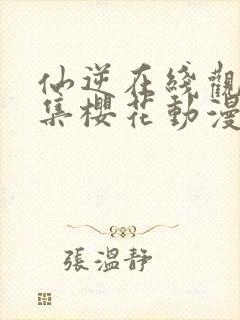 仙逆在綫觀
集櫻花動漫
張溫靜